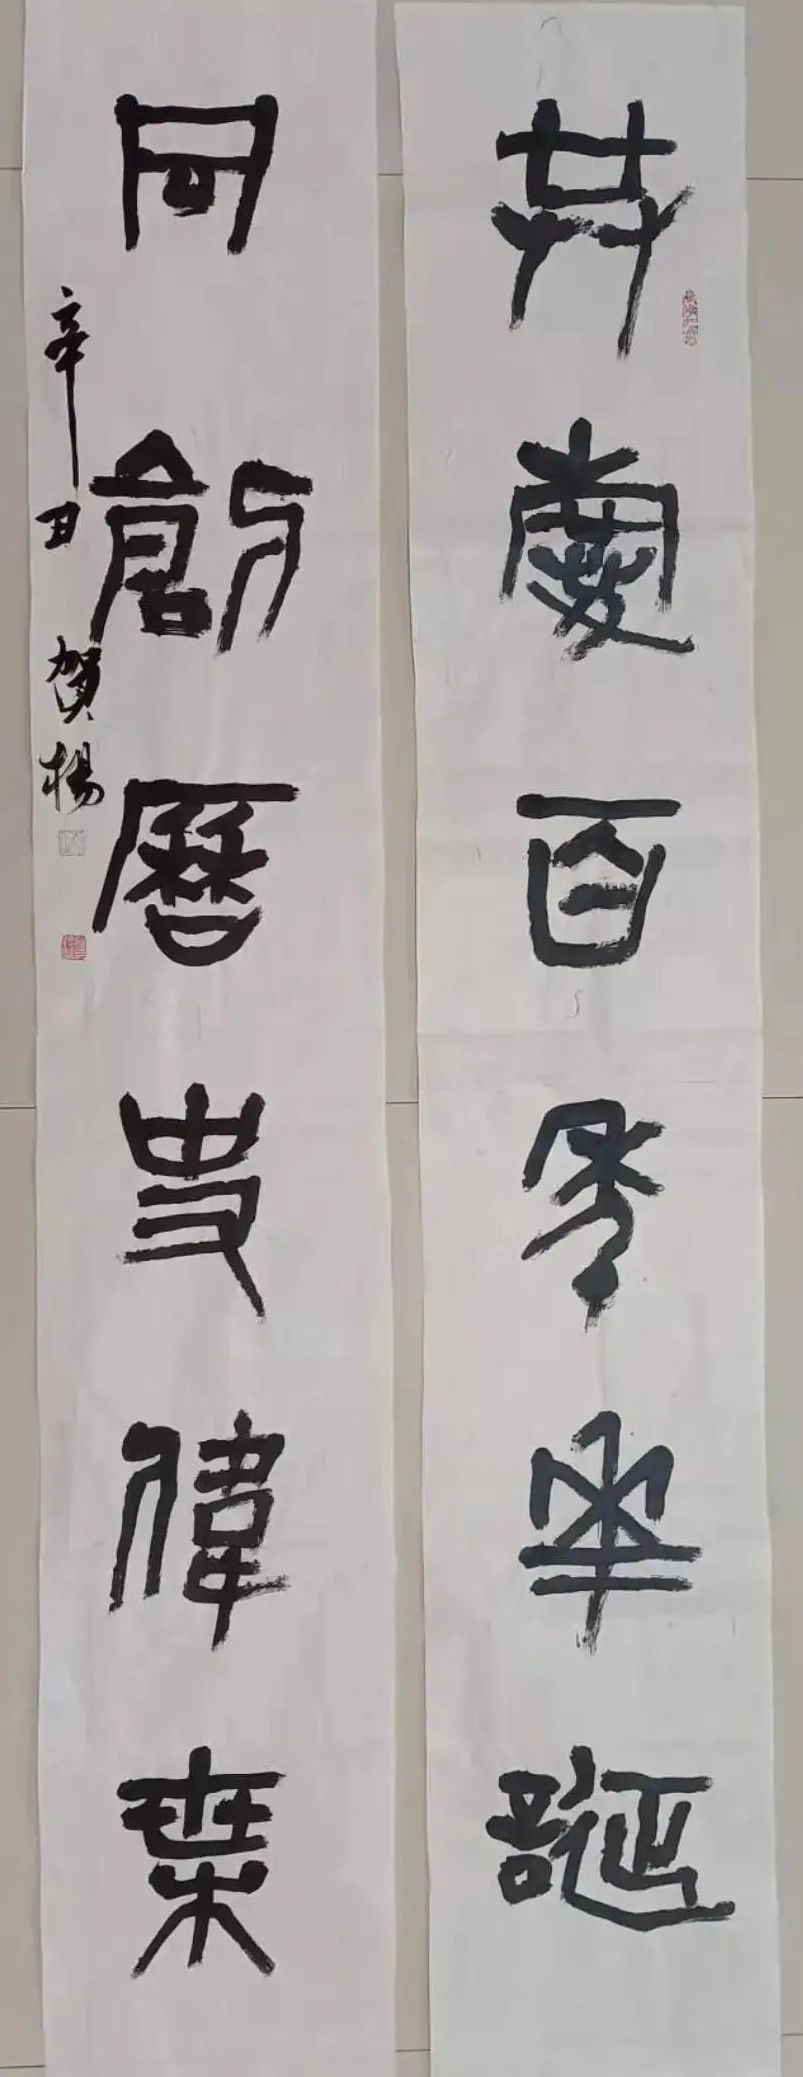 共慶百年華誕
同創曆史偉業
辛丑 賀楊